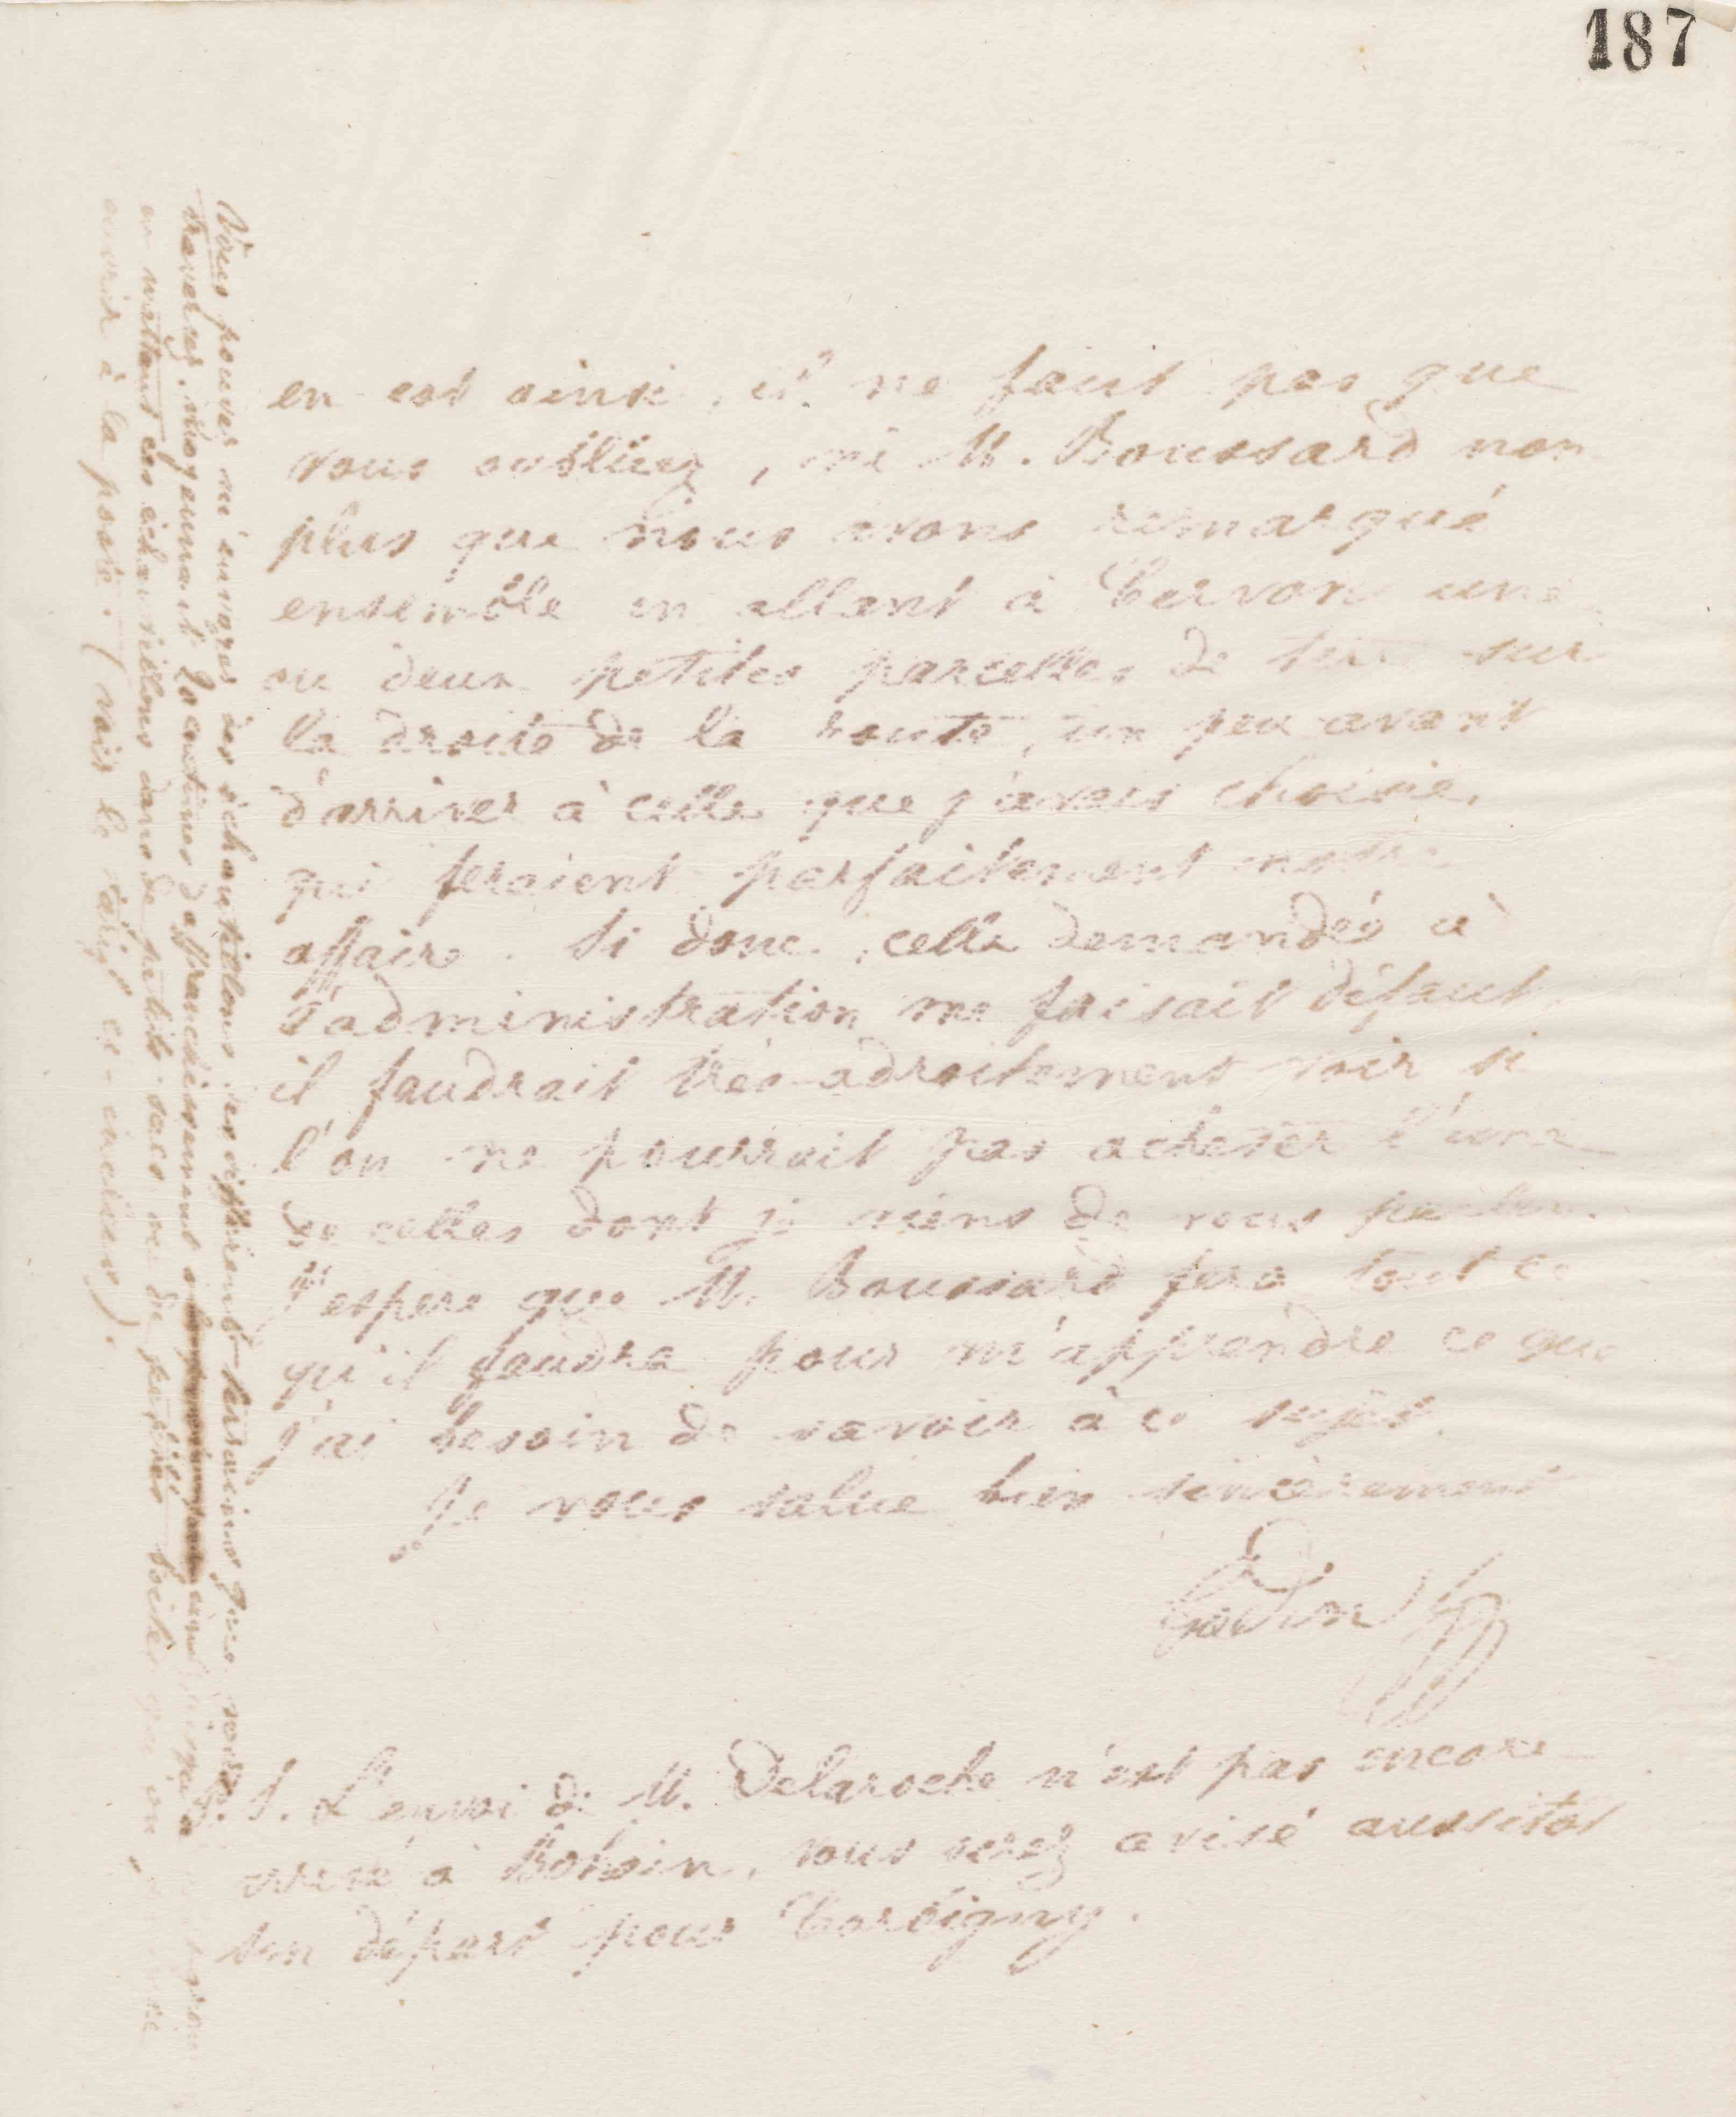 187
en est ainsi, il ne faut pas que
vous oubliez, ni M. Boussard non
plus que nous avons remarqué
ensemble en allant à Cervon une
ou deux petites parcelles de terre sur
la droite de la route, un peu avant
d'arriver à celle que j'avais choisie,
qui feraient parfaitement notre
affaire. Si donc, celle demandée à
l'administration me faisait défaut
il faudrait très-adroitement voir si
l'on ne pourrait pas acheter l'une
de celles dont je viens de vous parler.
J'espère que M. Boussard fera tout ce
qu'il faudra pour m'apprendre ce que
j'ai besoin de savoir à ce sujet.
Je vous salue bien sincèrement
Godin
P. S. L'envoi de M. Delaroche n'est pas encore
arrivé à Bohain, vous serez avisé aussitôt
son départ pour Corbigny.
Vous pouvez m'envoyer des échantillons des différents terrains que vous
traversez, moyennant 20 centimes d'affranchissement
en mettant ces échantillons dans de petits sacs ou de petites boites qu'on
ouvrir à la poste. (voir le tarif ci-inclus).